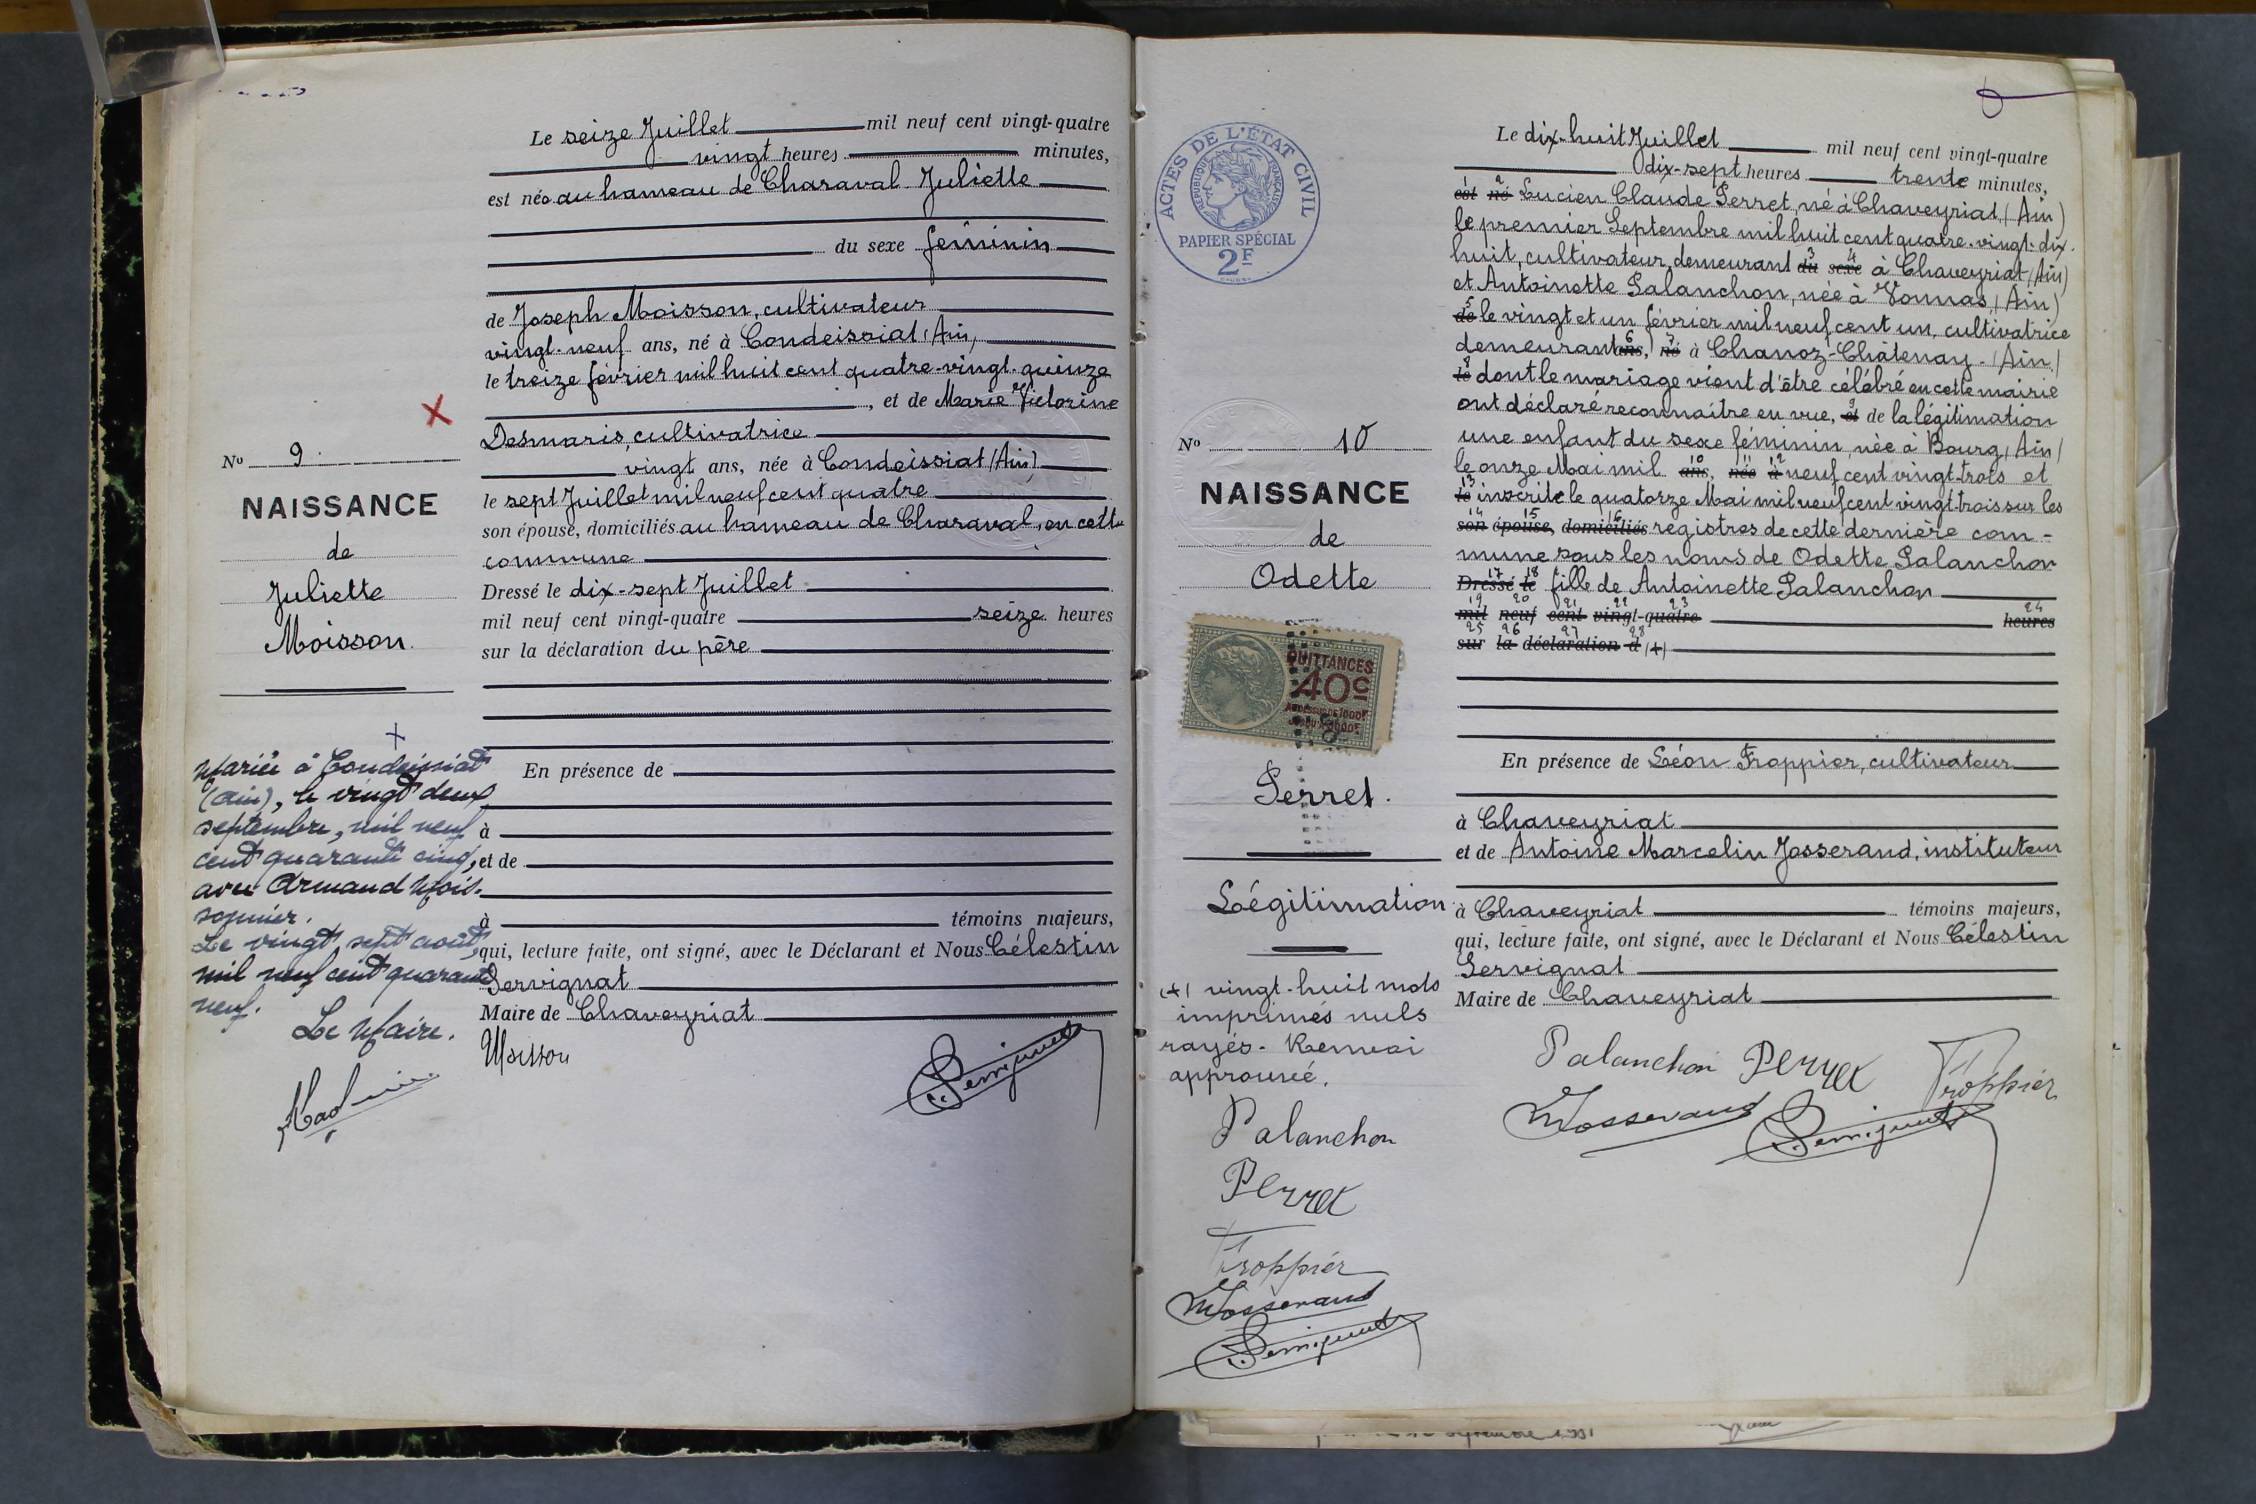 Le seize Juillet mil neuf cent vingt-quatre
vingt heures minutes,
est née au hameau de Charaval Juliette
du sexe féminin
de Joseph Moisson, cultivateur
vingt-neuf ans, né à Condeissiat (Ain)
le treize février mil huit cent quatre-vingt-quinze
, et de Marie Victorine
Desmaris, cultivatrice
vingt ans, née à Condeissiat (Ain)
le sept Juillet mil neuf cent quatre
son épouse, domiciliés au hameau de Charaval, en cette
commune
Dressé le dix-sept Juillet
mil neuf cent vingt-quatre seize heures
sur la déclaration du père
En présence de
à
et de
à témoins majeurs,
qui, lecture faite, ont signé, avec le Déclarant et Nous Célestin
Servignat
Maire de Chaveyriat
Moisson
No 9
NAISSANCE
de
Juliette
Moisson.
Mariée à Condeissiat
(Ain), le vingt deux
septembre, mil neuf
cent quarante cinq,
avec Armand Mois-
sonnier.
Le vingt sept août,
mil neuf cent quarante
neuf.
Le Maire.
ACTES DE L'ÉTAT CIVIL
RÉPUBLIQUE FRANÇAISE
PAPIER SPÉCIAL
2F
No 10
NAISSANCE
de
Odette
QUITTANCES
40c
Perret.
Légitimation
(+) vingt-huit mots
imprimés nuls
rayés. Renvoi
approuvé.
Palanchon
Perret
Froppier
Josserand
Servignat
Le dix-huit Juillet mil neuf cent vingt-quatre
dix-sept heures trente minutes,
1 2
est né Lucien Claude Perret, né à Chaveyriat (Ain)
le premier Septembre mil huit cent quatre-vingt-dix-
huit, cultivateur, demeurant du 3 sexe 4 à Chaveyriat (Ain)
et Antoinette Palanchon, née à Vonnas (Ain)
5
de le vingt et un février mil neuf cent un, cultivatrice
demeurant ans, 6 né 7 à Chanoz-Châtenay (Ain)
8
le dont le mariage vient d'être célébré en cette mairie
ont déclaré reconnaître en vue, et 9 de la légitimation
une enfant du sexe féminin, née à Bourg (Ain)
le onze Mai mil ans, 10 née 11 à 12 neuf cent vingt-trois et
13
le inscrite le quatorze Mai mil neuf cent vingt-trois sur les
14 15 16
son épouse, domiciliés registres de cette dernière com-
mune sous les noms de Odette Palanchon
17 18
Dressé le fille de Antoinette Palanchon
19 20 21 22 23 24
mil neuf cent vingt-quatre heures
25 26 27 28
sur la déclaration d (+)
En présence de Léon Froppier, cultivateur
à Chaveyriat
et de Antoine Marcelin Josserand, instituteur
à Chaveyriat témoins majeurs,
qui, lecture faite, ont signé, avec le Déclarant et Nous Célestin
Servignat
Maire de Chaveyriat
Palanchon Perret Froppier
Josserand Servignat